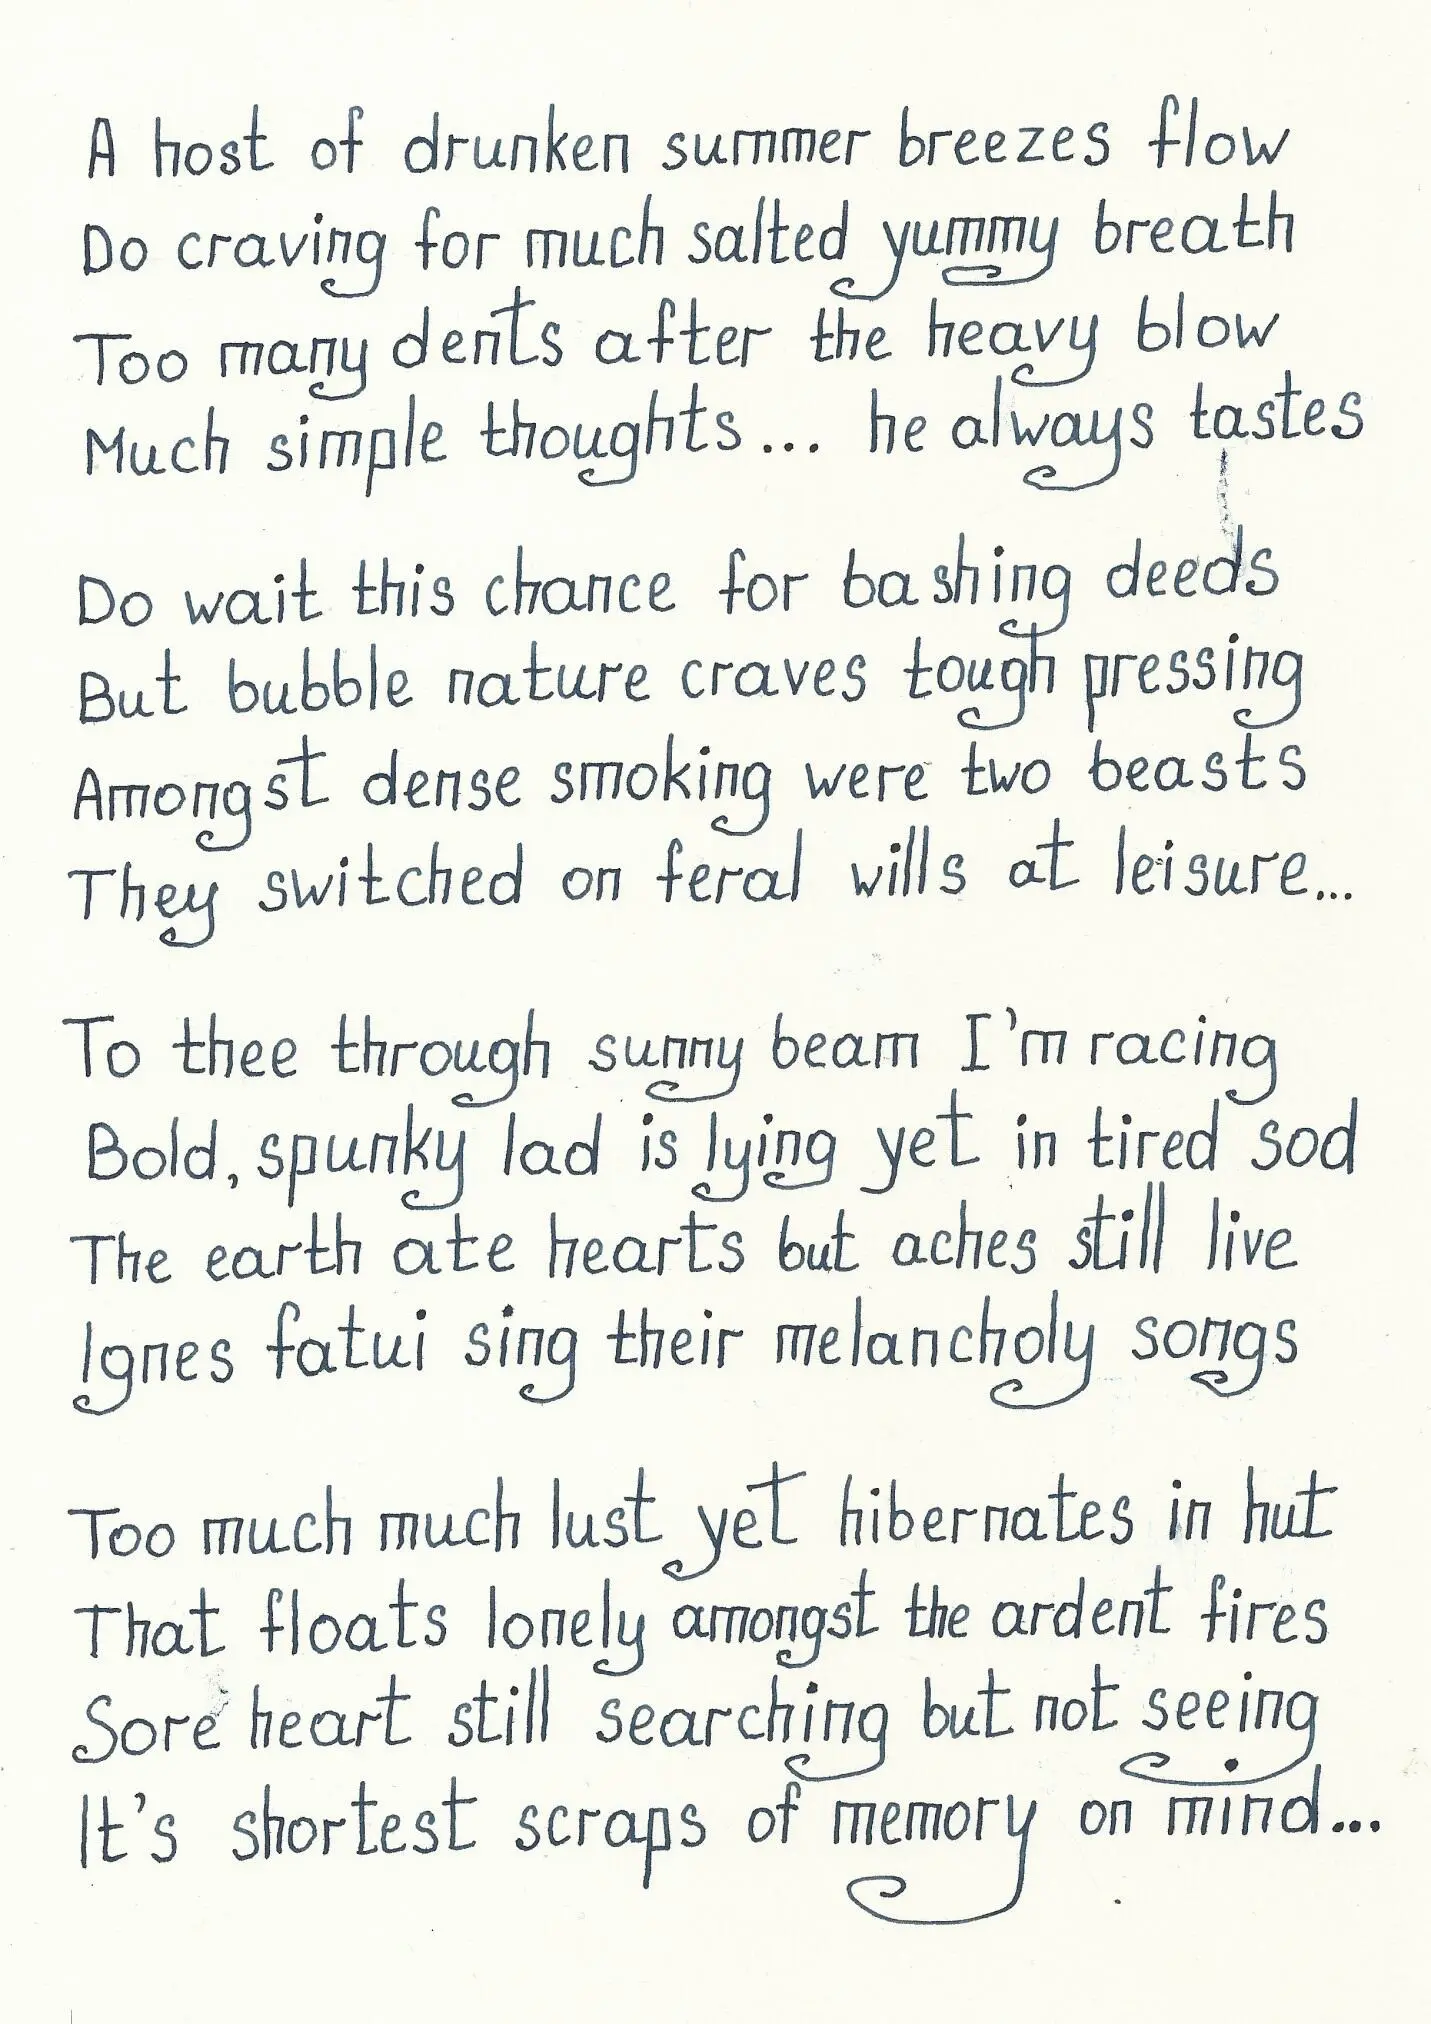 A host of drunken summer breezes flow
Do craving for much salted yummy breath
Too many dents after the heavy blow
Much simple thoughts... he always tastes
Do wait this chance for bashing deeds
But bubble nature craves tough pressing
Amongst dense smoking were two beasts
They switched on feral wills at leisure...
To thee through sunny beam I'm racing
Bold, spunky lad is lying yet in tired sod
The earth ate hearts but aches still live
Ignes fatui sing their melancholy songs
Too much much lust yet hibernates in hut
That floats lonely amongst the ardent fires
Sore heart still searching but not seeing
It's shortest scraps of memory on mind...